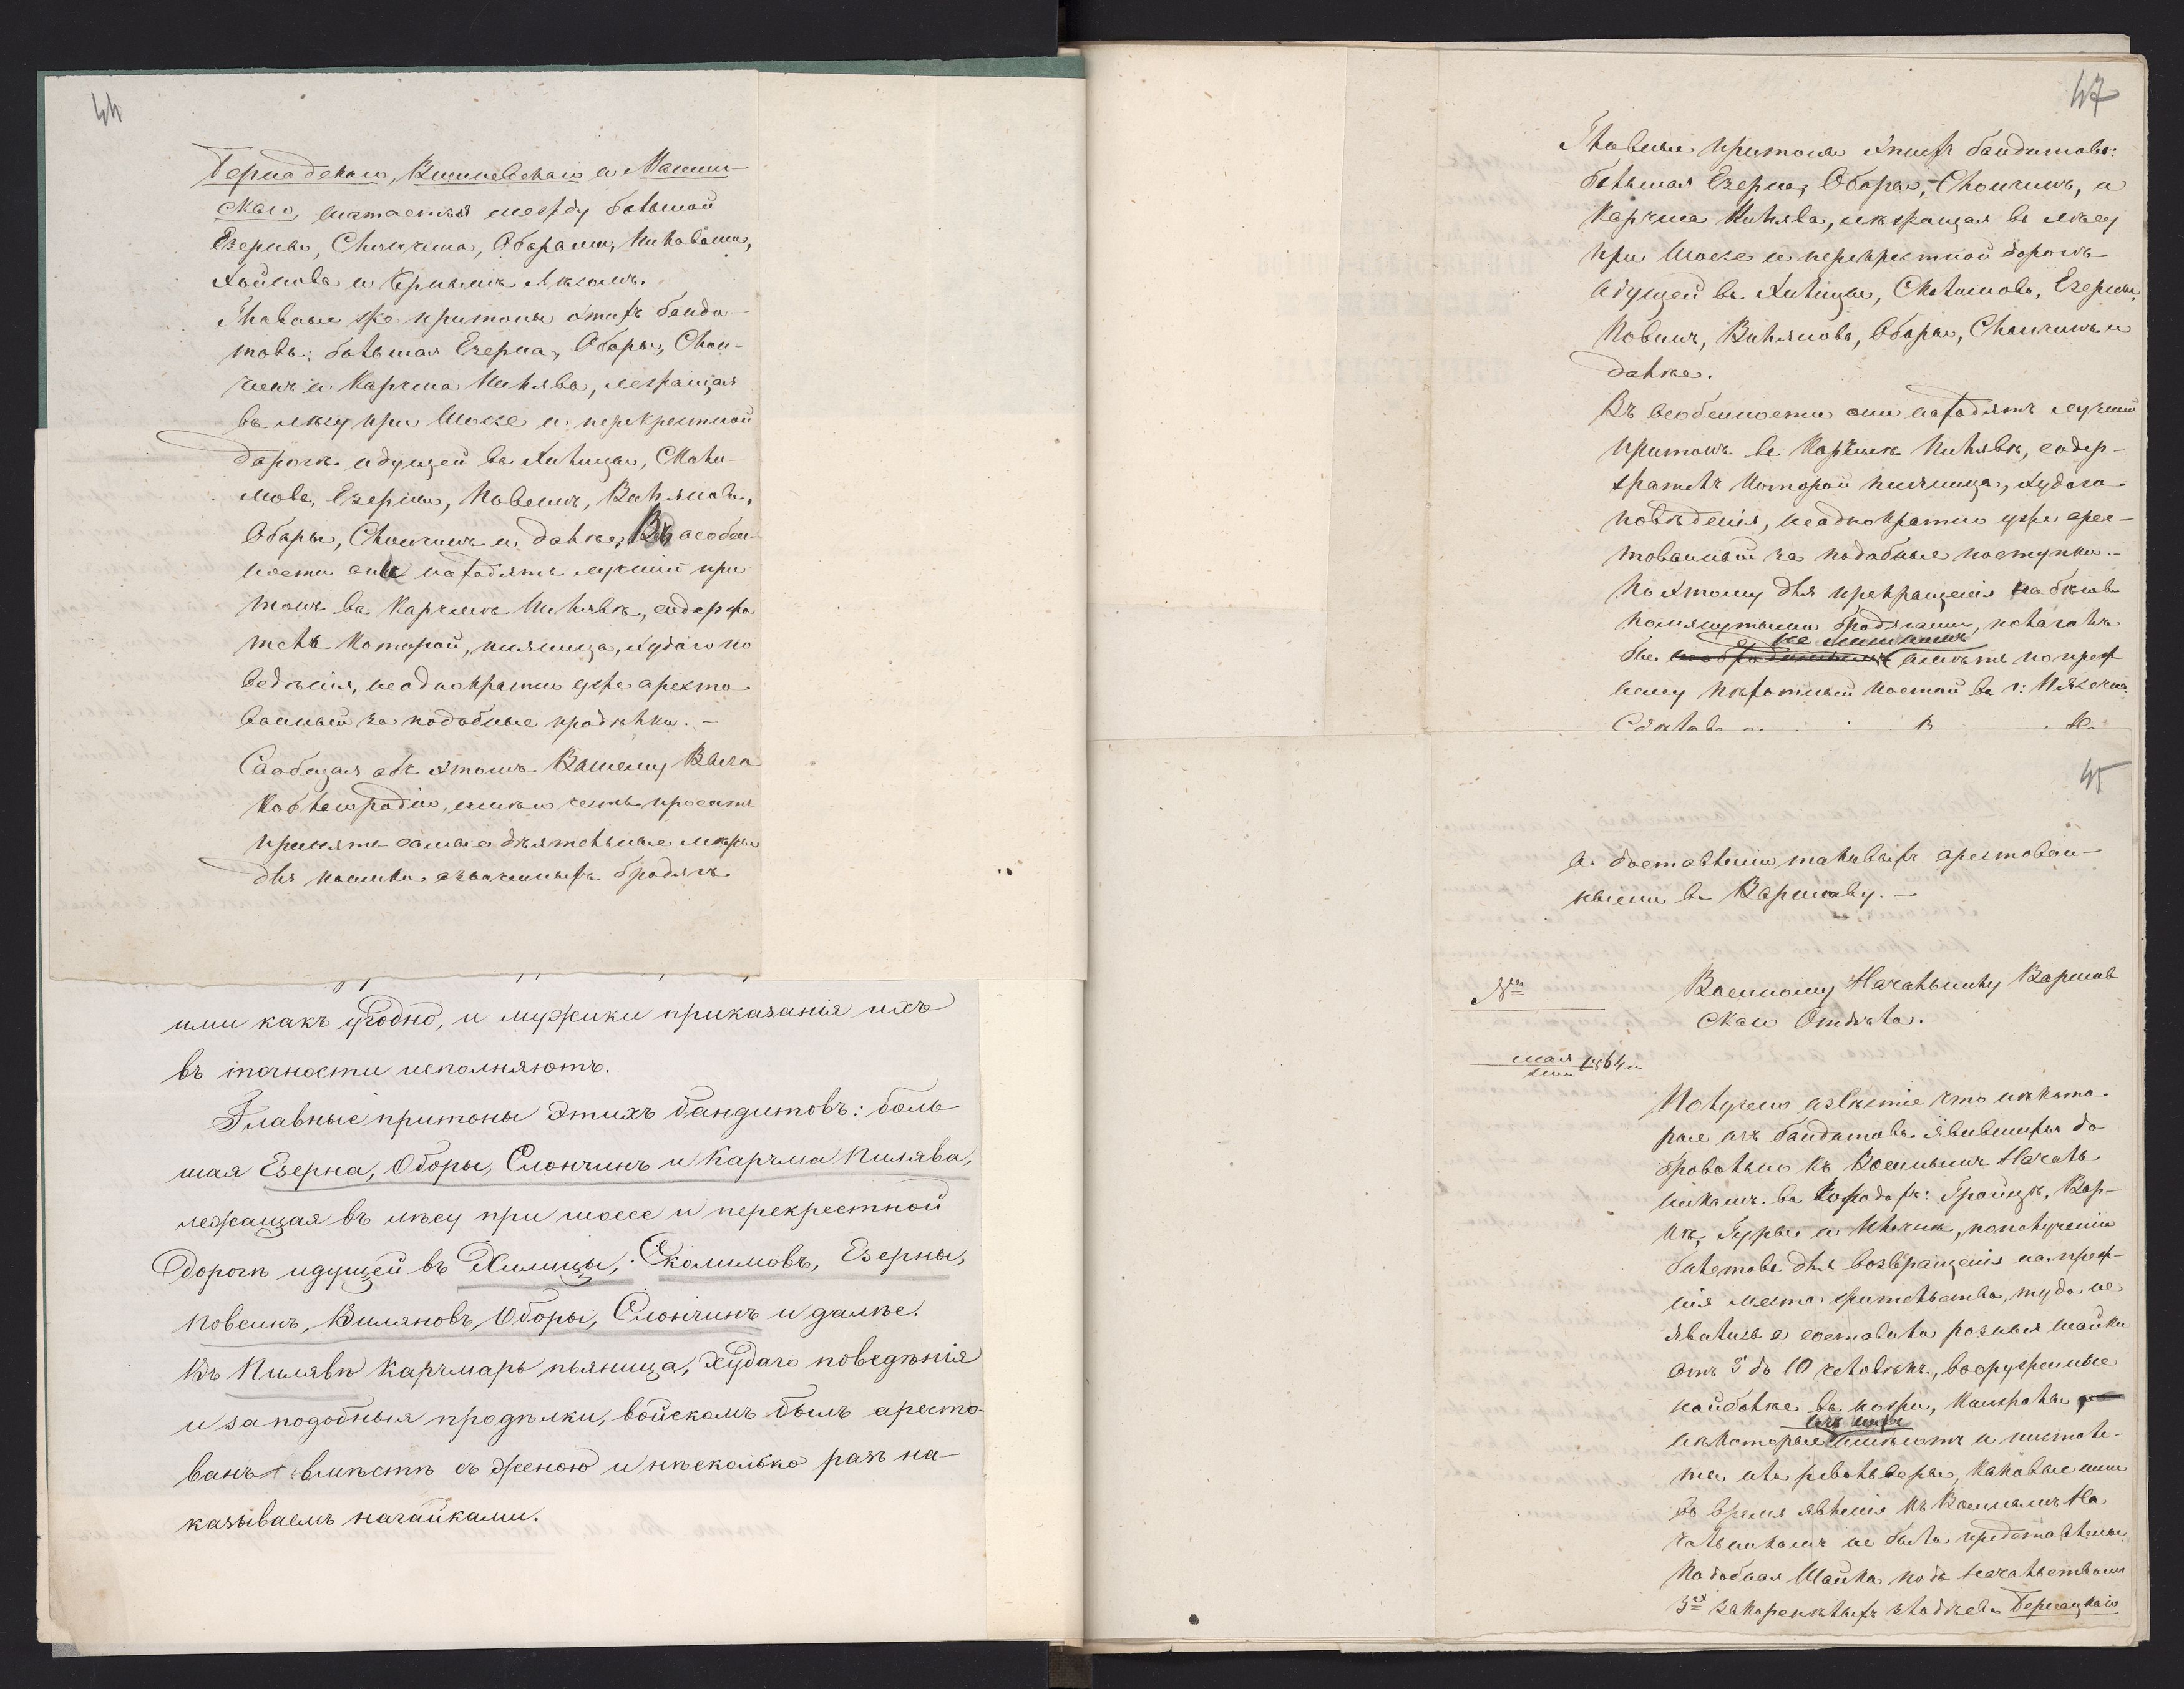 44
Бернадскаго, Висневскаго и Маши-
скаго, шатается между большой
Езерны, Слончина, Оборами, Пиловами,
Хойнова и Чернымъ Лѣсомъ.
Главные же притоны этихъ банди-
товъ: большая Езерна, Оборы, Слон-
чинъ и Карчма Пилява, лежащая
въ лѣсу при Шоссе и перекрестной
дорогѣ идущей въ Хилицы, Сколи-
мовъ, Езерны, Повсинъ, Виляновъ,
Оборы, Слончинъ и далѣе. Въ особен-
ности они находятъ лучшій при
тонъ въ Карчмѣ Пилявѣ, содержа
тель которой, пьяница, худаго по
веденія, неоднократно уже аресто-
ванный за подобные продѣлки. –
Сообщая объ этомъ Вашему Высо
коблагородію, имѣю честь просить
принять самые дѣятельные мѣры
для поимки означенныхъ бродягъ.
ими какъ угодно, и мужики приказанія ихъ
въ точности исполняютъ.
Главные притоны этихъ бандитовъ: боль
шая Езерна, Оборы, Слончинъ и Карчма Пилява,
лежащая въ лѣсу при шоссе и перекрестной
дорогѣ идущей въ Хилицы, Сколимовъ, Езерны,
Повсинъ, Виляновъ, Оборы, Слончинъ и далѣе.
Въ Пилявѣ Карчмарь пьяница, худаго поведѣнія
и за подобныя продѣлки, войскомъ былъ аресто-
ванъ вмѣстѣ съ женою и нѣсколько разъ на-
казываемъ нагайками.
47
Главные притоны этихъ бандитовъ:
большая Езерна, Оборы, Слончинъ, и
Карчма Пилява, лежащая въ лѣсу
при Шоссе и перекрестной дорогѣ
идущей въ Хилицы, Сколимовъ, Езерны,
Повсинъ, Вилянова, Оборы, Слончинъ и
далѣе.
Въ особенности они находятъ лучшій
притонъ въ Карчмѣ Пилявѣ, содер-
жатель которой пьяница, худаго
повѣденія, неоднократно уже арес-
тованный за подобные поступки. –
Поэтому для прекращенія набѣговъ
помянутыми бродягами, полагалъ
не лишнимъ
бы имѣть по преж
нему пѣхотный постой въ г: Пясечна
45
и доставленіи таковыхъ арестован-
ными въ Варшаву. –
№
Военному Начальнику Варшав
скаго Отдѣла.
мая 1864 г.
Получено извѣстіе что нѣкото-
рые изъ бандитовъ явившихся до
бровольно къ Военнымъ Началь
никамъ въ городахъ: Гройцѣ, Вар-
кѣ, Гурѣ и, по полученіи
билетовъ для возвращенія на преж-
нія места жительства, туда не
явились и составили разныя шайки
отъ 5 до 10 человѣкъ, вооруженные
наиболѣе въ ножи, кинжалы
изъ нихъ
нѣкоторые имѣютъ и пистоле-
ты или револьверы, каковые ими
во время явленія къ Военнымъ На
чальникамъ не были представлены
Подобная Шайка подъ начальствомъ
3хъ закоренѣлыхъ злодѣевъ Бернацкаго